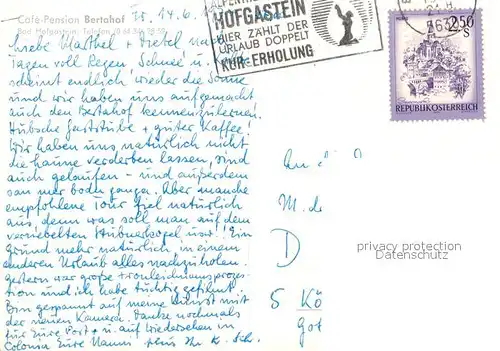 Café-Pension Bertahof
Bad Hofgastein Telefon
14.6.
HOFGASTEIN
HIER ZÄHLT DER
URLAUB DOPPELT
KUR-ERHOLUNG
2.50
S
REPUBLIK ÖSTERREICH
Liebe Marthel + Dietel nach
Tagen voll Regen Schnee u.
scheint endlich wieder die Sonne
und wir haben uns aufgemacht
auch den Bertahof kennenzulernen.
Hübsche Gaststube + guter Kaffee!
Wir haben uns natürlich nicht
die Laune verderben lassen, sind
auch gelaufen - und außerdem
san mer boch ganga. Aber manche
empfohlene Tour fiel natürlich
aus, denn was soll man auf dem
verniebelten Stubnerkogel usw! Ein
Grund mehr natürlich in einem
anderen Urlaub alles nachzuholen.
Gestern war große Fronleichnamsprozes-
sion und ich habe tüchtig gefilmt.
Bin gespannt auf meine Kunst mit
der neuen Kamera. Danke nochmals
für Eure Post + u. auf Wiedersehen in
Colonia Eure Hanni
An
D
5 Kö
privacy protection
veikkos-archiv